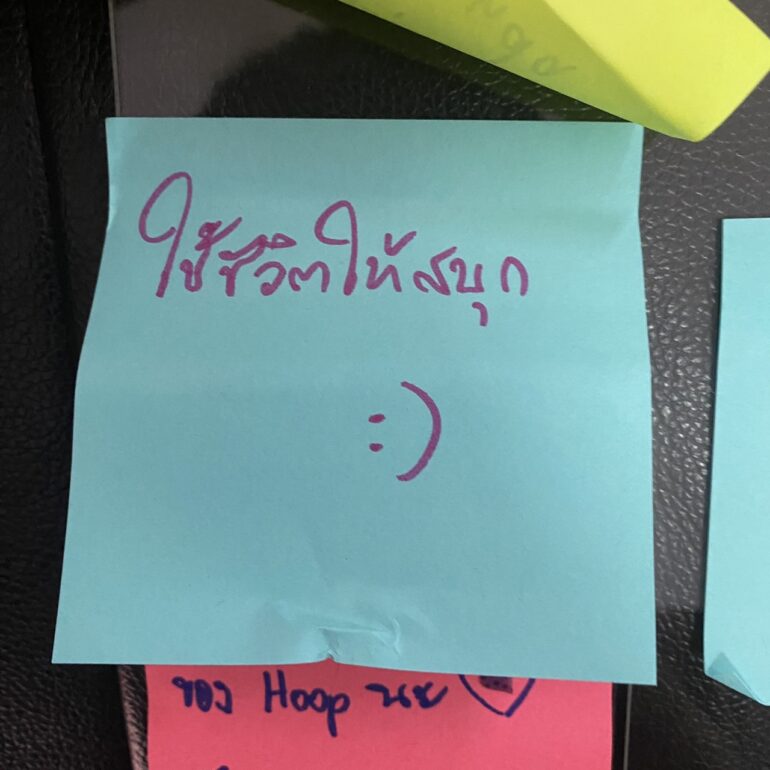 ใช้ชีวิตให้สนุก
:)
ของ Hoop